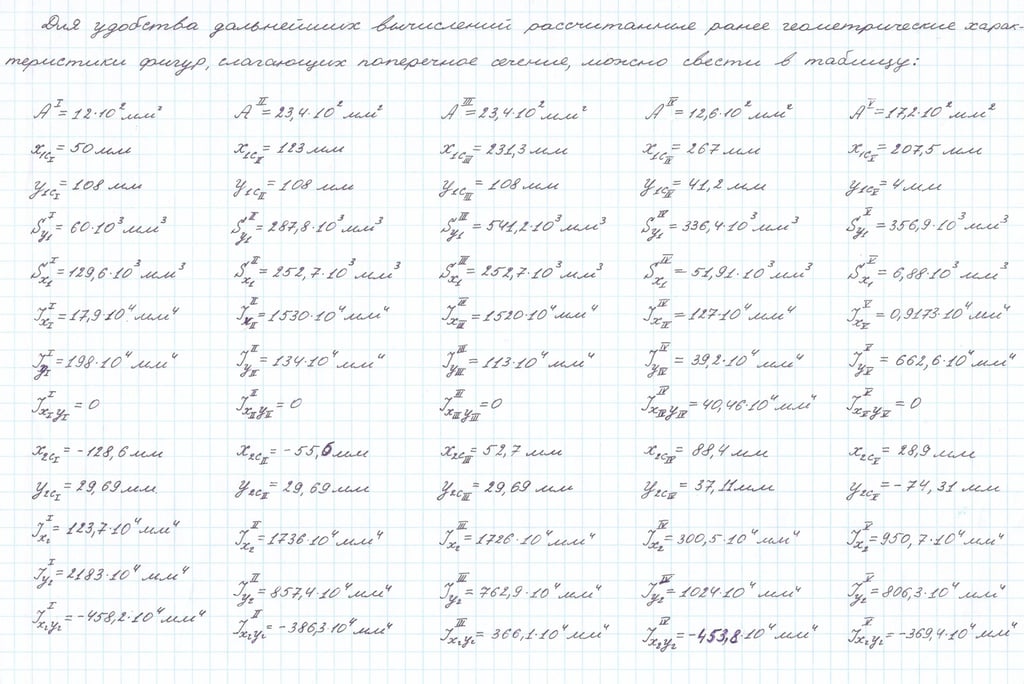 Для удобства дальнейших вычислений рассчитанные ранее геометрические харак-
теристики фигур, слагающих поперечное сечение, можно свести в таблицу:
A^I = 12·10² мм² A^II = 23,4·10² мм² A^III = 23,4·10² мм² A^IV = 12,6·10² мм² A^V = 17,2·10² мм²
x_1C_I = 50 мм x_1C_II = 123 мм x_1C_III = 231,3 мм x_1C_IV = 267 мм x_1C_V = 207,5 мм
y_1C_I = 108 мм y_1C_II = 108 мм y_1C_III = 108 мм y_1C_IV = 41,2 мм y_1C_V = 4 мм
S_y1^I = 60·10³ мм³ S_y1^II = 287,8·10³ мм³ S_y1^III = 541,2·10³ мм³ S_y1^IV = 336,4·10³ мм³ S_y1^V = 356,9·10³ мм³
S_x1^I = 129,6·10³ мм³ S_x1^II = 252,7·10³ мм³ S_x1^III = 252,7·10³ мм³ S_x1^IV = 51,91·10³ мм³ S_x1^V = 6,88·10³ мм³
J_xI^I = 17,9·10⁴ мм⁴ J_xII^II = 1530·10⁴ мм⁴ J_xIII^III = 1520·10⁴ мм⁴ J_xIV^IV = 127·10⁴ мм⁴ J_xV^V = 0,9173·10⁴ мм⁴
J_yI^I = 198·10⁴ мм⁴ J_yII^II = 134·10⁴ мм⁴ J_yIII^III = 113·10⁴ мм⁴ J_yIV^IV = 39,2·10⁴ мм⁴ J_yV^V = 662,6·10⁴ мм⁴
J_xIyI^I = 0 J_xIIyII^II = 0 J_xIIIyIII^III = 0 J_xIVyIV^IV = 40,46·10⁴ мм⁴ J_xVyV^V = 0
x_2C_I = -128,6 мм x_2C_II = -55,6 мм x_2C_III = 52,7 мм x_2C_IV = 88,4 мм x_2C_V = 28,9 мм
y_2C_I = 29,69 мм y_2C_II = 29,69 мм y_2C_III = 29,69 мм y_2C_IV = 37,11 мм y_2C_V = -74,31 мм
J_x2^I = 123,7·10⁴ мм⁴ J_x2^II = 1736·10⁴ мм⁴ J_x2^III = 1726·10⁴ мм⁴ J_x2^IV = 300,5·10⁴ мм⁴ J_x2^V = 950,7·10⁴ мм⁴
J_y2^I = 2183·10⁴ мм⁴ J_y2^II = 857,4·10⁴ мм⁴ J_y2^III = 762,9·10⁴ мм⁴ J_y2^IV = 1024·10⁴ мм⁴ J_y2^V = 806,3·10⁴ мм⁴
J_x2y2^I = -458,2·10⁴ мм⁴ J_x2y2^II = -386,3·10⁴ мм⁴ J_x2y2^III = 366,1·10⁴ мм⁴ J_x2y2^IV = -453,8·10⁴ мм⁴ J_x2y2^V = -369,4·10⁴ мм⁴